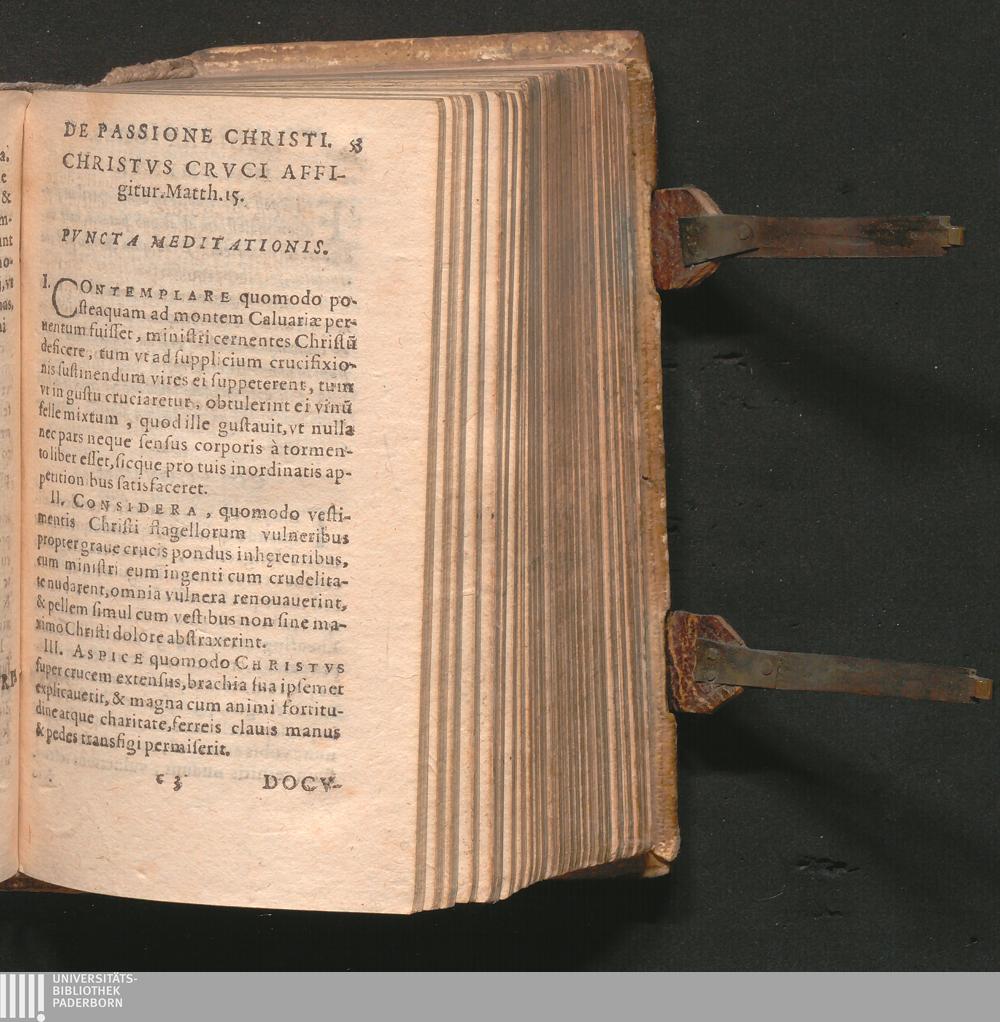 DE PASSIONE CHRISTI. 53
CHRISTVS CRVCI AFFI-
gitur. Matth. 15.
PVNCTA MEDITATIONIS.
I. CONTEMPLARE quomodo po-
ſteaquam ad montem Caluariæ per-
uentum fuiſſet, miniſtri cernentes Chriſtū
deficere, tum vt ad ſupplicium crucifixio-
nis ſuſtinendum vires ei ſuppeterent, tum
vt in guſtu cruciaretur, obtulerint ei vinū
felle mixtum, quod ille guſtauit, vt nulla
nec pars neque ſenſus corporis à tormen-
to liber eſſet, ſicque pro tuis inordinatis ap-
petitionibus ſatisfaceret.
II. CONSIDERA, quomodo veſti-
mentis Chriſti flagellorum vulneribus
propter graue crucis pondus inhęrentibus,
cum miniſtri eum ingenti cum crudelita-
te nudarent, omnia vulnera renouauerint,
& pellem ſimul cum veſtibus non ſine ma-
ximo Chriſti dolore abſtraxerint.
III. ASPICE quomodo CHRISTVS
ſuper crucem extenſus, brachia ſua ipſemet
explicauerit, & magna cum animi fortitu-
dine atque charitate, ferreis clauis manus
& pedes transfigi permiſerit.
c 3 DOCV-
UNIVERSITÄTS-
BIBLIOTHEK
PADERBORN